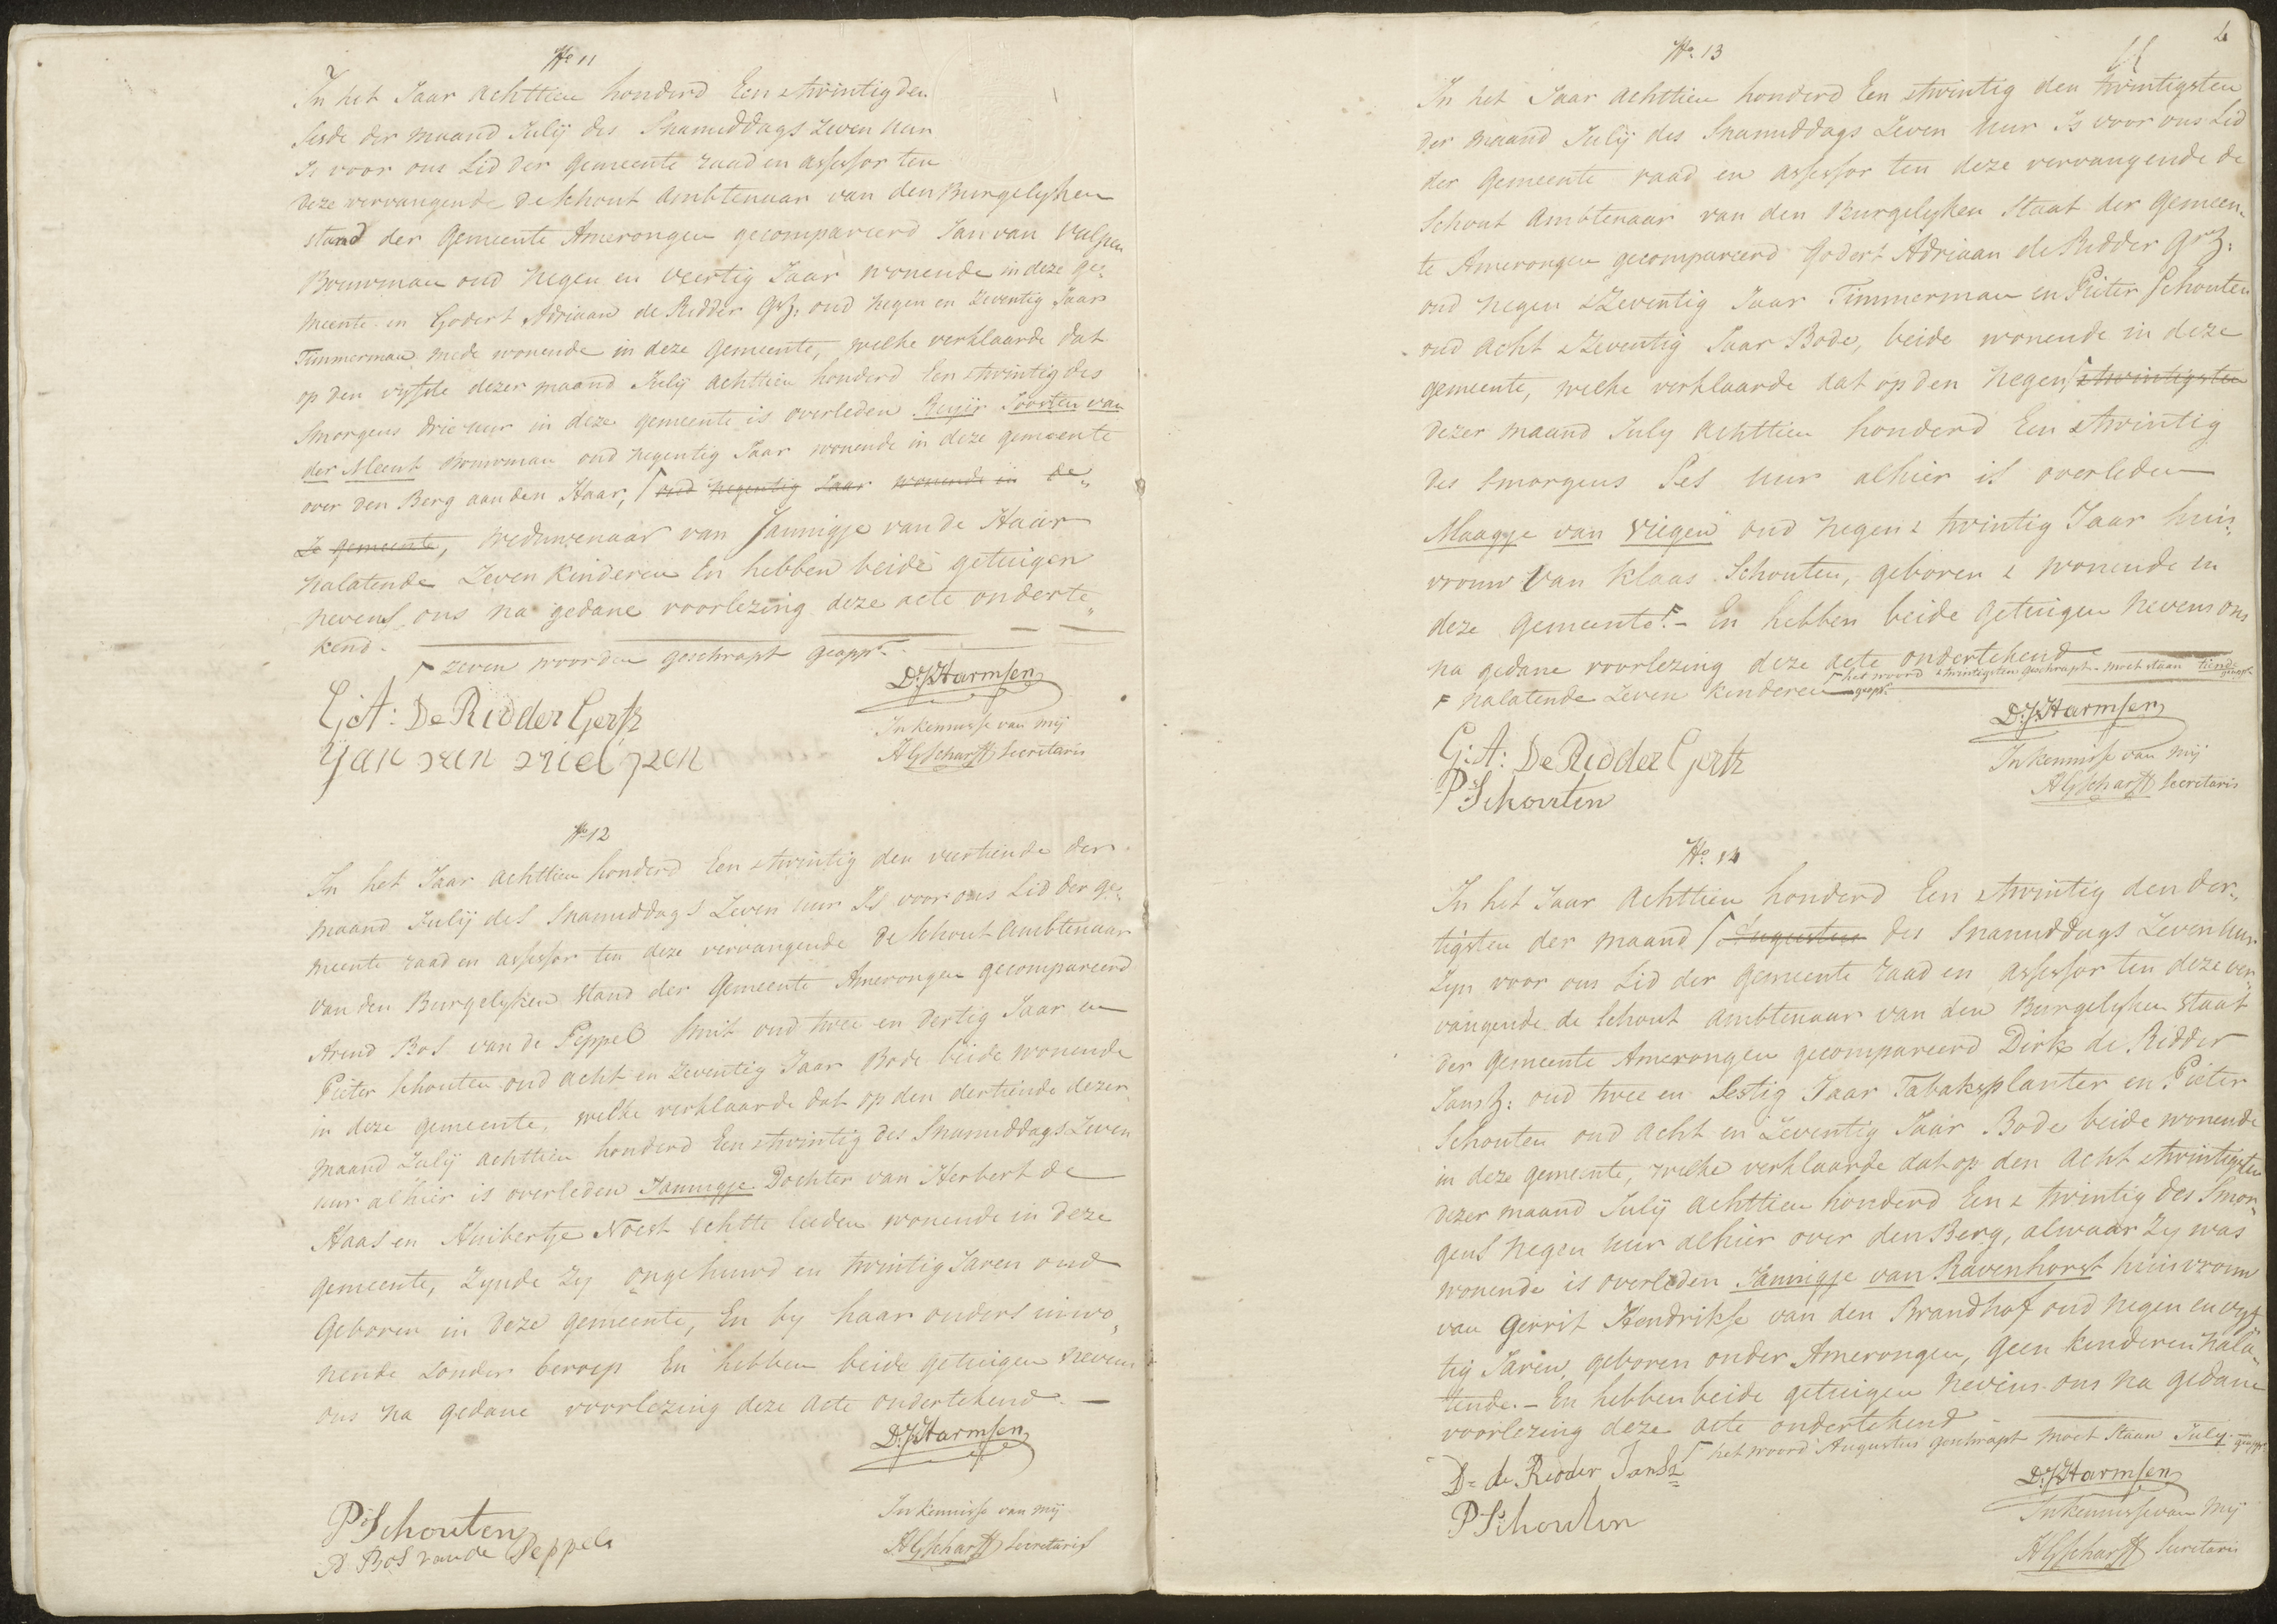 No 11
In het Jaar achttien honderd Een & twintig den
sesde der maand Julij des Snamiddags Zeven uur
Is voor ons Lid der Gemeente raad en assessor ten
deze vervangende de Schout Ambtenaar van den Burgelyken
stand der Gemeente Amerongen gecompareerd Jan van Vulpen
Bouwman oud Negen en Veertig Jaar wonende in deze ge„
meente en Godert Adriaan de Ridder Grtz: oud Negen en Zeventig Jaar
Timmerman mede wonende in deze Gemeente, welke verklaarde dat
op den vyfde dezer maand Julij achttien honderd Een & twintig des
Smorgens drie uur in deze gemeente is overleden Reyër Joosten van
der Meent Bouwman oud Negentig Jaar wonende in deze gemeente
over den Berg aan den Haar, ⌈ oud Negentig Jaar wonende in de„
ze gemeente, Weduwenaar van Jannigje van de Haar
nalatende Zeven Kinderen En hebben beide getuigen
nevens ons na gedane voorlezing deze acte onderte„
kend.
⌈ zeven woorden geschrapt geappt.
D:J:Harmsen
G:A: De Ridder Gertz
Jan van vielpen
In kennisse van mij
HGScharff Secretaris
No 12
In het Jaar achttien honderd Een & twintig den veertiende der
maand Julij des Snamiddags Zeven uur Is voor ons Lid der ge„
meente raad en assessor ten deze vervangende de Schout Ambtenaar
van den Burgelyken Stand der Gemeente Amerongen gecompareerd
Arend Bos van de Peppel Smit oud twee en dertig Jaar en
Pieter Schouten oud acht en Zeventig Jaar Bode beide wonende
in deze gemeente, welke verklaarde dat op den dertiende dezer
maand Julij achttien honderd Een & twintig des Snamiddags Zeven
uur alhier is overleden Jannigje Dochter van Herbert de
Haas en Huibertje Noest echtte lieden wonende in deze
gemeente, Zynde Zy ongehuwd en twintig Jaren oud
Geboren in deze gemeente, En by haar ouders inwo„
nende zonder beroep En hebben beide getuigen nevens
ons na gedane voorlezing deze acte ondertekend. —
D:J:Harmsen
P:Schouten
A Bos vande Peppel
In kennisse van mij
HGScharff Secretaris
4
No 13
In het Jaar achttien honderd Een & twintig den twintigsten
der maand Julij des Snamiddags Zeven Uur Is voor ons Lid
der Gemeente raad en assessor ten deze vervangende de
Schout Ambtenaar van den Burgelyken Staat der Gemeen„
te Amerongen gecompareerd Godert Adriaan de Ridder Grtz:
oud negen & Zeventig Jaar Timmerman en Pieter Schouten
oud acht & Zeventig Jaar Bode, beide wonende in deze
gemeente, welke verklaarde dat op den Negen ⌈ & twintigsten
dezer maand July achttien honderd Een & twintig
des smorgens Ses uur alhier is overleden
Maagje van Viegen oud Negen & twintig Jaar huis„
vrouw van Klaas Schouten, geboren & wonende in
deze Gemeente ⌈. - En hebben beide getuigen nevens ons
na gedane voorlezing deze acte ondertekend
⌈ het woord & twintigsten geschrapt - moet staan tiende geappt
F nalatende Zeven kinderen geappt.
D:J:Harmsen
G:A: De Ridder Gertz
P:Schouten
In kennisse van mij
HGScharff Secretaris
No 14
In het Jaar achttien honderd Een & twintig den der„
tigsten der maand ⌈ Augustus des Snamiddags Zeven uur
Zyn voor ons Lid der Gemeente raad en assessor ten deze ver„
vangende de Schout Ambtenaar van den Burgelyken Staat
der Gemeente Amerongen gecompareerd Dirk de Ridder
Jansz: oud twee en Sestig Jaar Tabaksplanter en Pieter
Schouten oud acht en Zeventig Jaar Bode beide wonende
in deze gemeente, welke verklaarde dat op den acht & twintigsten
dezer maand Julij achttien honderd Een & twintig des Smor„
gens negen uur alhier over den Berg, alwaar Zy was
wonende is overleden Jannigje van Ravenhorst huisvrouw
van Gerrit Hendrikse van den Brandhof oud negen en vyf
tig Jaren, geboren onder Amerongen, Geen kinderen nala„
tende. - En hebben beide getuigen nevens ons na gedane
voorlezing deze acte ondertekend
⌈ het woord Augustus geschrapt moet staan July - geappt
D= de Ridder Jansz
P:Schouten
D:J:Harmsen
In kennisse van mij
HGScharff Secretaris